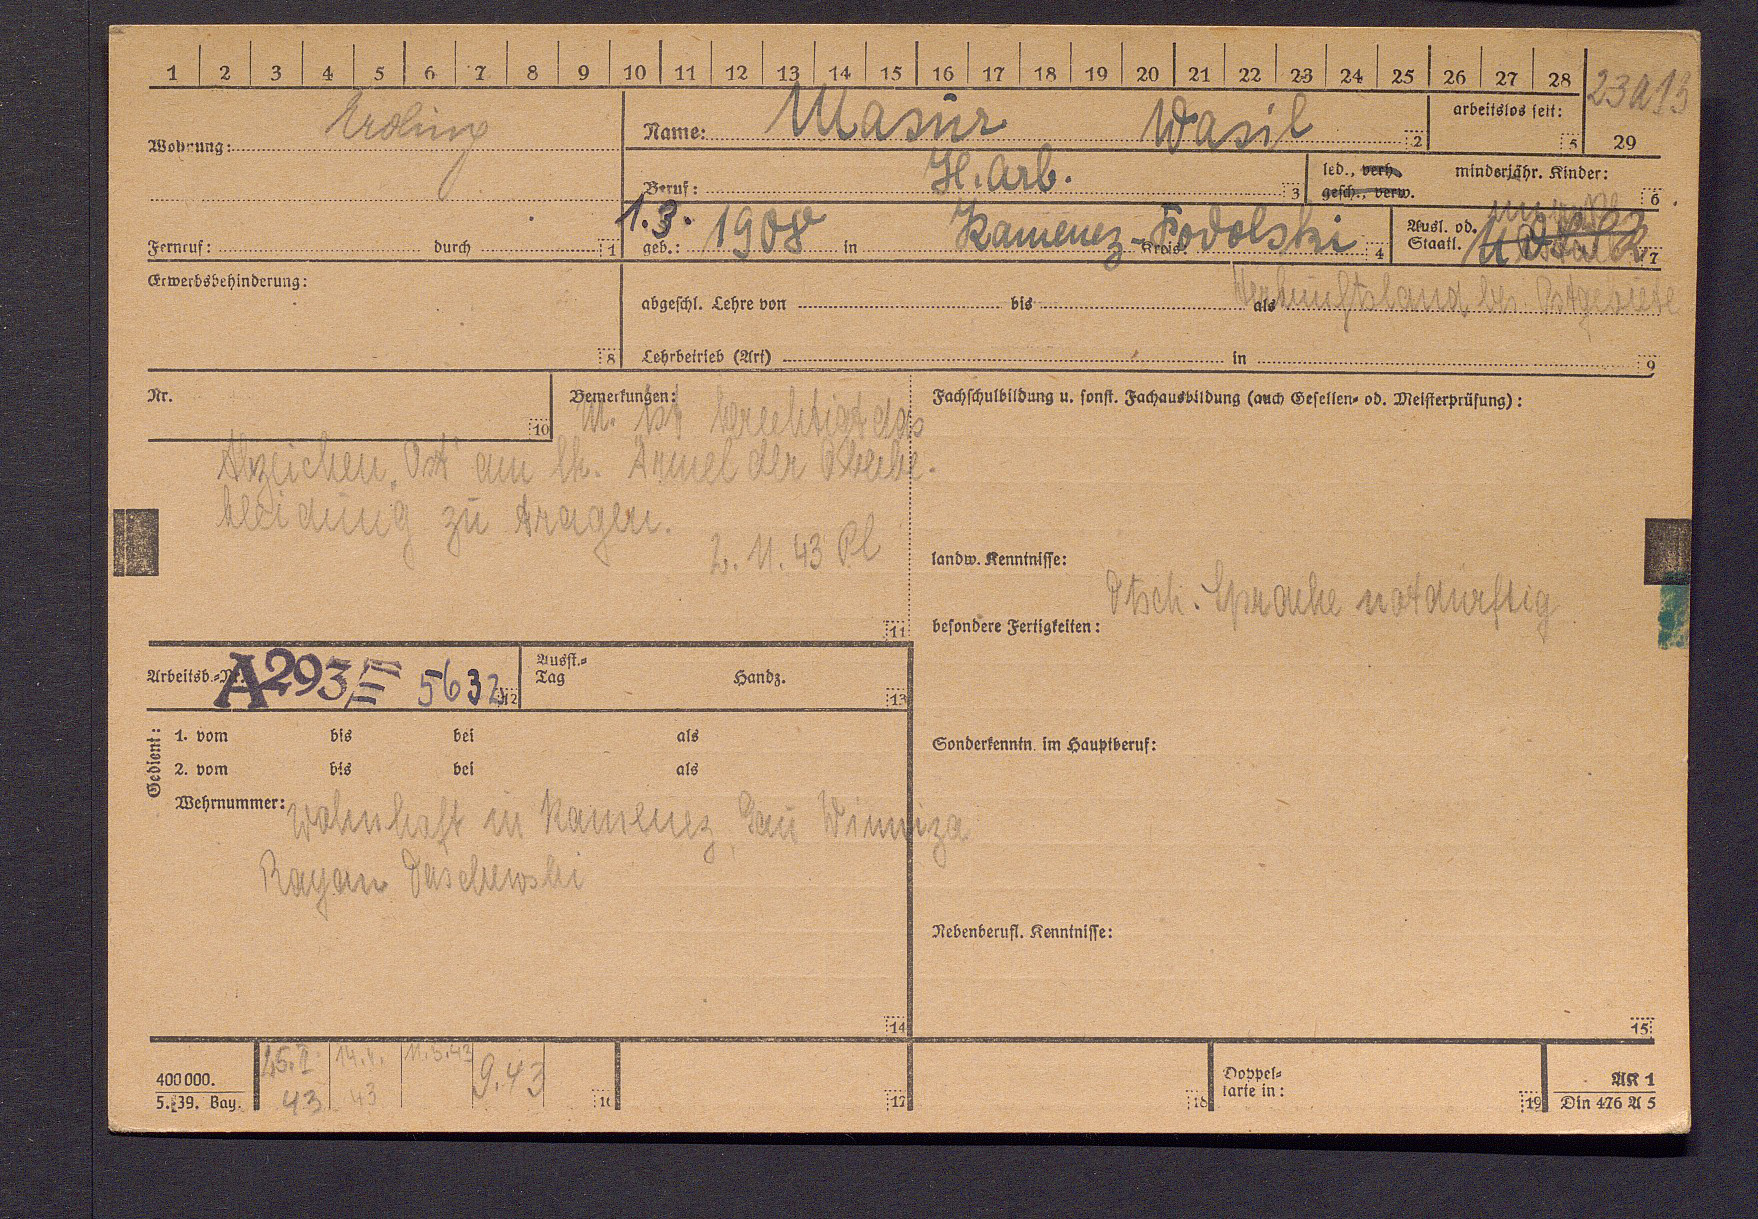 1 2 3 4 5 6 7 8 9 10 11 12 13 14 15 16 17 18 19 20 21 22 23 24 25 26 27 28
23a13
29
Wohnung: Erding
Name: Masur Wasil 2
arbeitslos seit: 5
Beruf: H. Arb. 3
led., verh.
gesch., verw.
minderjähr. Kinder: 6
Fernruf: durch 1
1.3.
geb.: 1908 in Kamenez-Podolski Kreis: 4
Ausl. od.
Staatl. 7
Erwerbsbehinderung: 8
Herkunftsland bes. Ostgebiete
abgeschl. Lehre von bis als
Lehrbetrieb (Art) in 9
Nr. 10
Bemerkungen: M. ist berechtigt das
Abzeichen „Ost" am lk. Ärmel der
kleidung zu tragen.
2. 11. 43 Pl
11
Fachschulbildung u. sonst. Fachausbildung (auch Gesellen- od. Meisterprüfung):
landw. Kenntnisse:
Dtsch. Sprache notdürftig
besondere Fertigkeiten:
Arbeitsb.-Nr. A293E 5632 12
Ausst.-
Tag Handz. 13
Sonderkenntn. im Hauptberuf:
Gedient:
1. vom bis bei als
2. vom bis bei als
Wehrnummer: Wohnhaft in Kamenez, Gau Winniza
Rayon Daschewski
14
Nebenberufl. Kenntnisse:
15
400 000.
5. 39. Bay.
15.I. 43
14.4. 43
11.5.43
9.43
16 17 18
Doppel-
karte in: 19
AK 1
Din 476 A 5